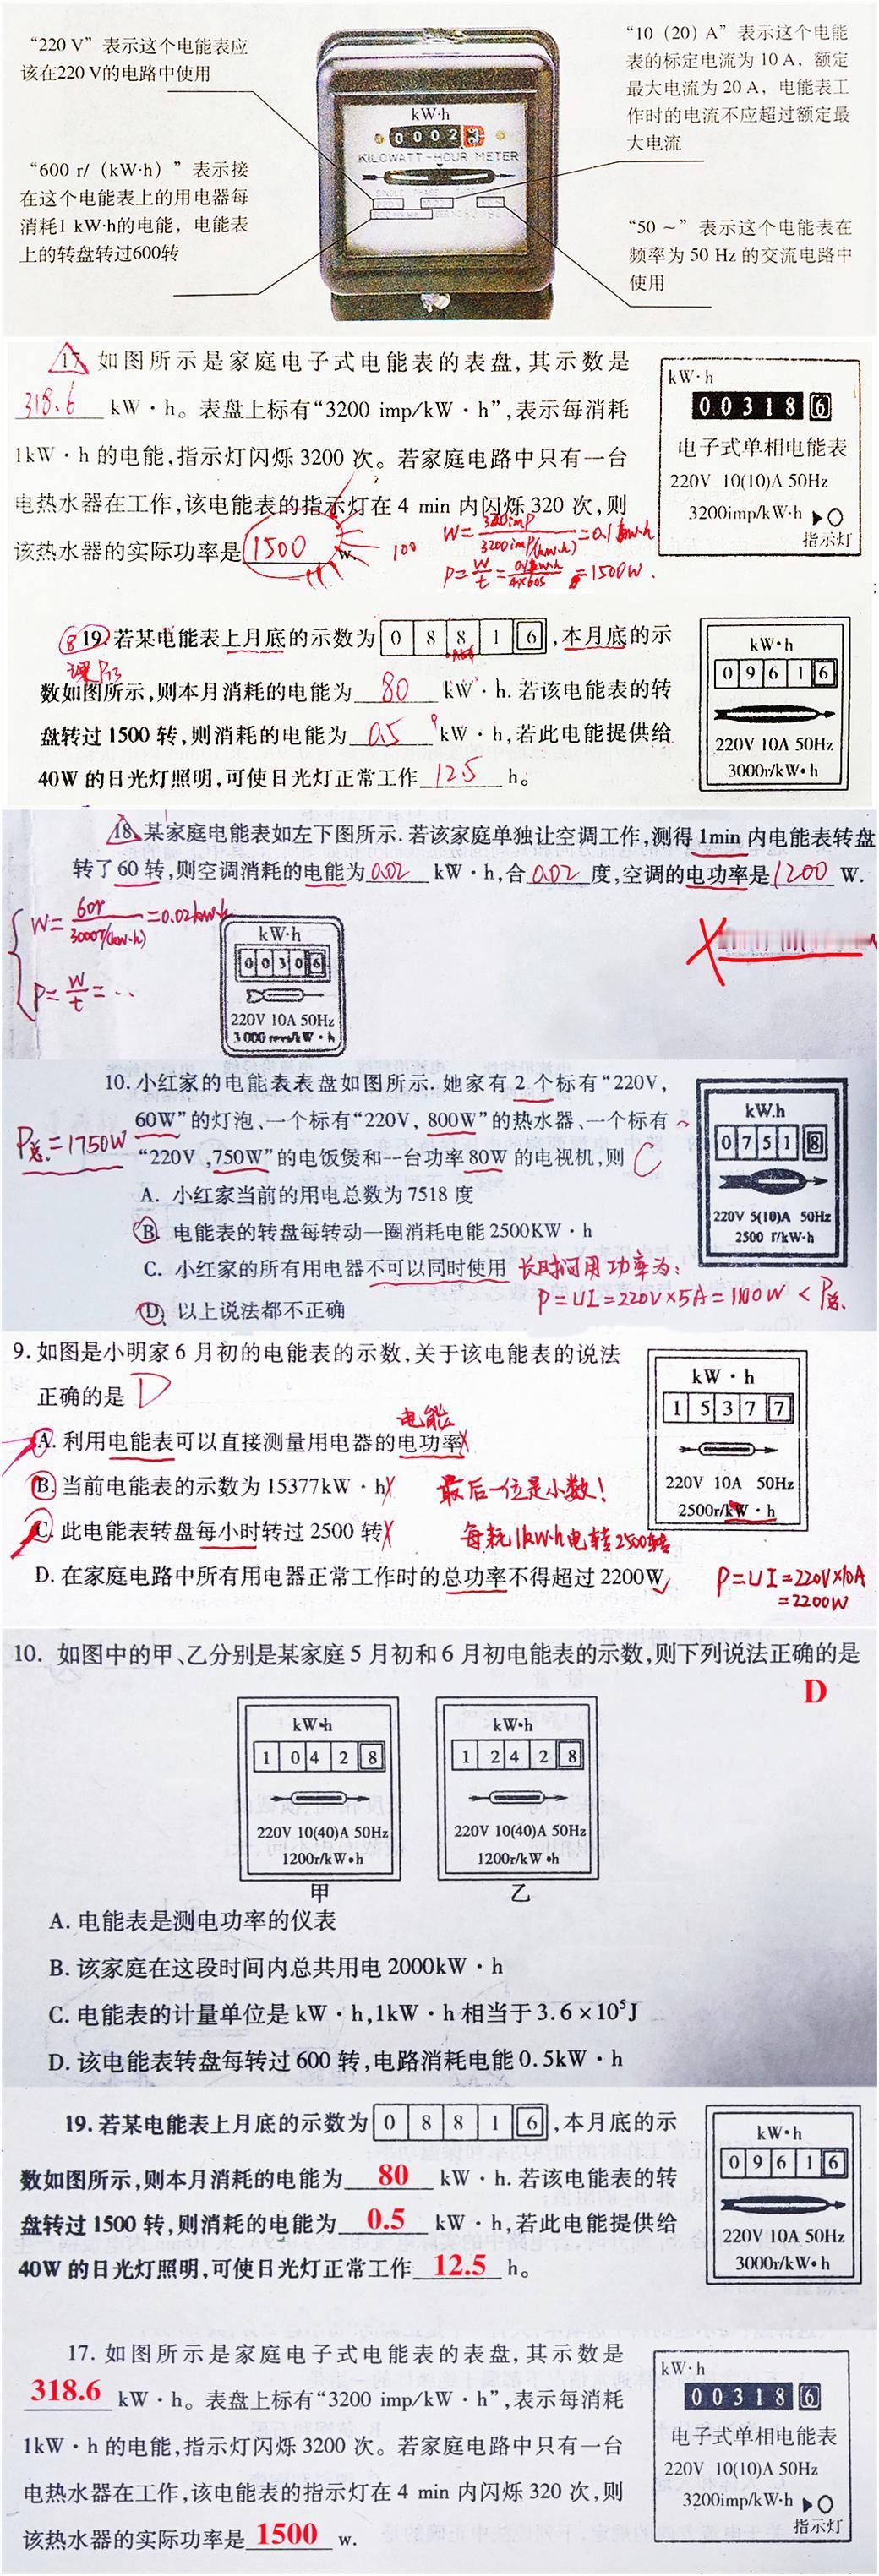 “220 V”表示这个电能表应
该在220 V的电路中使用
“600 r/（kW·h）”表示接
在这个电能表上的用电器每
消耗1 kW·h的电能，电能表
上的转盘转过600转
kW·h
0 0 0 2
KILOWATT-HOUR METER
“10（20）A”表示这个电能
表的标定电流为 10 A，额定
最大电流为 20 A，电能表工
作时的电流不应超过额定最
大电流
“50 ~”表示这个电能表在
频率为 50 Hz 的交流电路中
使用
17. 如图所示是家庭电子式电能表的表盘,其示数是
318.6 kW·h。表盘上标有“3200 imp/kW·h”,表示每消耗
1kW·h 的电能,指示灯闪烁 3200 次。若家庭电路中只有一台
电热水器在工作,该电能表的指示灯在 4 min 内闪烁 320 次,则
该热水器的实际功率是 1500 w.
100
W=320imp/3200imp/(kw·h)=0.1kw·h
P=W/t=0.1kw·h/4×60s=1500W.
kW·h
0 0 3 1 8 6
电子式单相电能表
220V 10(10)A 50Hz
3200imp/kW·h
指示灯
8 19. 若某电能表上月底的示数为 0 8 8 1 6 ,本月底的示
数如图所示,则本月消耗的电能为 80 kW·h. 若该电能表的转
盘转过 1500 转,则消耗的电能为 0.5 kW·h,若此电能提供给
40W 的日光灯照明,可使日光灯正常工作 12.5 h。
kW·h
0 9 6 1 6
220V 10A 50Hz
3000r/kW·h
18. 某家庭电能表如左下图所示. 若该家庭单独让空调工作,测得 1min 内电能表转盘
转了 60 转,则空调消耗的电能为 0.02 kW·h,合 0.02 度,空调的电功率是 1200 W.
W=60r/3000r/(kw·h)=0.02kw·h
P=W/t=…
kW·h
0 0 3 0 6
220V 10A 50Hz
3 000 revs/kW·h
10. 小红家的电能表表盘如图所示. 她家有 2 个标有“220V,
60W”的灯泡、一个标有“220V, 800W”的热水器、一个标有
“220V ,750W”的电饭煲和一台功率 80W 的电视机,则 C
P总=1750W
A. 小红家当前的用电总数为 7518 度
B. 电能表的转盘每转动一圈消耗电能 2500KW·h
C. 小红家的所有用电器不可以同时使用
D. 以上说法都不正确
长时间用功率为:
P=UI=220V×5A=1100W<P总.
kW.h
0 7 5 1 8
220V 5(10)A 50Hz
2500 r/kW·h
9. 如图是小明家 6 月初的电能表的示数,关于该电能表的说法
正确的是 D
电能
A. 利用电能表可以直接测量用电器的电功率
B. 当前电能表的示数为 15377kW·h
最后一位是小数!
C. 此电能表转盘每小时转过 2500 转
每耗1kw·h电转2500转
D. 在家庭电路中所有用电器正常工作时的总功率不得超过 2200W
P=UI=220V×10A
=2200W
kW·h
1 5 3 7 7
220V 10A 50Hz
2500r/kW·h
10. 如图中的甲、乙分别是某家庭 5 月初和 6 月初电能表的示数,则下列说法正确的是
D
kW·h
1 0 4 2 8
220V 10(40)A 50Hz
1200r/kW·h
甲
kW·h
1 2 4 2 8
220V 10(40)A 50Hz
1200r/kW·h
乙
A. 电能表是测电功率的仪表
B. 该家庭在这段时间内总共用电 2000kW·h
C. 电能表的计量单位是 kW·h,1kW·h 相当于 3.6×10⁵J
D. 该电能表转盘每转过 600 转,电路消耗电能 0.5kW·h
19. 若某电能表上月底的示数为 0 8 8 1 6 ,本月底的示
数如图所示,则本月消耗的电能为 80 kW·h. 若该电能表的转
盘转过 1500 转,则消耗的电能为 0.5 kW·h,若此电能提供给
40W 的日光灯照明,可使日光灯正常工作 12.5 h。
kW·h
0 9 6 1 6
220V 10A 50Hz
3000r/kW·h
17. 如图所示是家庭电子式电能表的表盘,其示数是
318.6 kW·h。表盘上标有“3200 imp/kW·h”,表示每消耗
1kW·h 的电能,指示灯闪烁 3200 次。若家庭电路中只有一台
电热水器在工作,该电能表的指示灯在 4 min 内闪烁 320 次,则
该热水器的实际功率是 1500 w.
kW·h
0 0 3 1 8 6
电子式单相电能表
220V 10(10)A 50Hz
3200imp/kW·h
指示灯